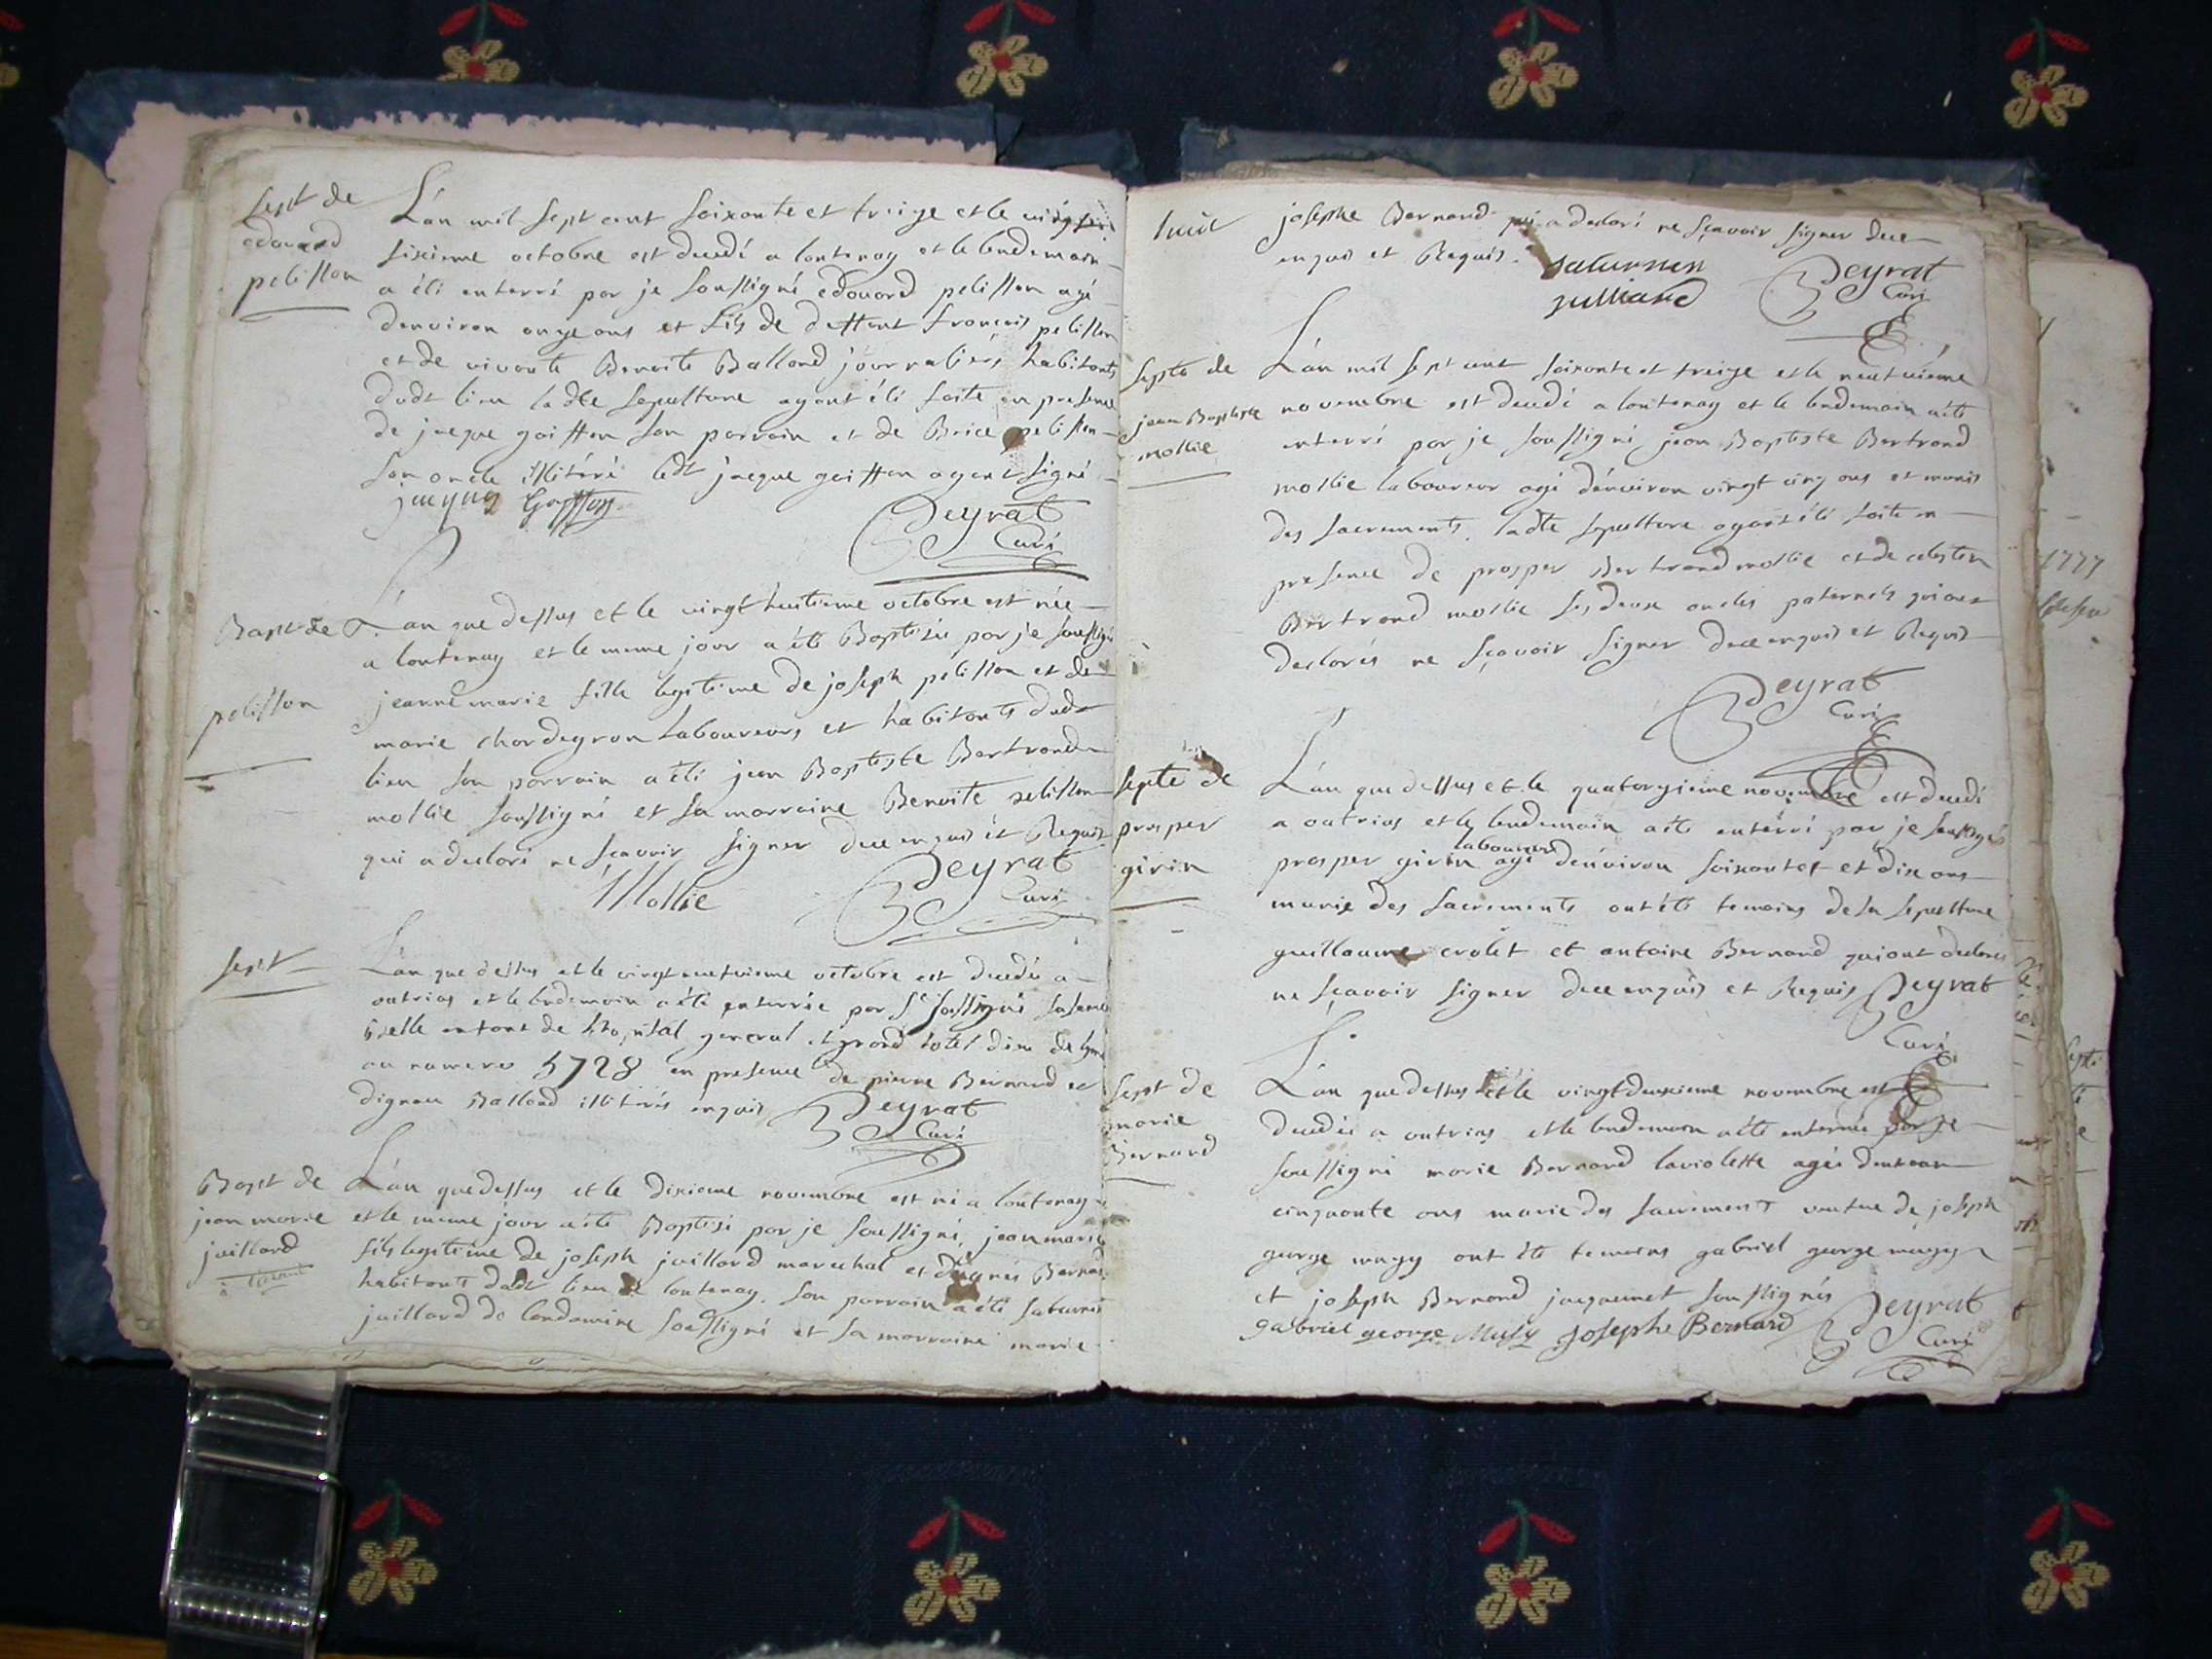 Sept de
edouard
pelisson
L'an mil sept cent soixante et treize et le vingt
sixieme octobre est decedé a lontenay et le lendemain
a été enterré par je soussigné edouard pelisson agé
denviron onze ans et fils de deffunt francois pelisson
et de vivante Benoite Balland journaliers habitants
dudt lieu ladte sepulture ayant été faite en presence
de jacque goiffon son parrain et de Brice pelisson
son oncle illitéré ledt jacque goiffon ayant signé
jacques Goiffon
Deyrat
Curé
Bapt de
pelisson
L'an que dessus et le vingt huitieme octobre est née
a lontenay et le meme jour a été Baptisée par je soussigné
jeanne marie fille legitime de joseph pelisson et de
marie chardeyron laboureurs et habitants dudt
lieu son parrain a été jean Baptiste Bertrand
mollie soussigné et sa marraine Benoite pelisson
qui a declaré ne sçavoir signer dece enquis et Requis
Mollie
Deyrat
Curé
Sept
L'an que dessus et le vingt neuvieme octobre est decedé a
outrias et le lendemain a été enterrée par je soussigné
enfant de hopital general et grand hotel dieu de lyon
au numero 5728 en presence de pierre Bernard et
Balland illitérés enquis
Deyrat
Curé
Bapt de
jean marie
juillard
L'an que dessus et le dixieme novembre est né a lontenay
et le meme jour a été Baptisé par je soussigné, jean marie
fils legitime de joseph juillard marechal et dagnés Bernard
habitants dudt lieu de lontenay. son parrain a été saturnin
juillard de soussigné et sa marraine marie
josephe Bernard qui a declaré ne sçavoir signer dece
enquis et Requis.
saturnin
julliard
Deyrat
Curé
Septe de
jean Baptiste
mollie
L'an mil sept cent soixante et treize et le neuvieme
novembre est decedé a lontenay et le lendemain a été
enterré par je soussigné jean Baptiste Bertrand
mollie laboureur agé denviron vingt cinq ans et munis
des sacrements. ladte sepulture ayant été faite en
presence de prosper Bertrand mollie et de celestin
Bertrand mollie ses deux oncles paternels qui ont
declarés ne sçavoir signer dece enquis et Requis
Deyrat
Curé
Septe de
prosper
girin
L'an que dessus et le quatorzieme novembre est decedé
a outrias et le lendemain a été enterré par je soussigné
laboureur
prosper girin agé denviron soixante et dix ans
munis des sacrements ont été temoins de sa sepulture
guillaume crolet et antoine Bernard qui ont declarés
ne sçavoir signer dece enquis et Requis Deyrat
Curé
Sept de
marie
Bernard
L'an que dessus et le vingt deuxieme novembre est
decedée a outrias et le lendemain a été enterrée par je
soussigné marie Bernard laviolette agée denviron
cinquante ans munie des sacrements veufue de joseph
george mugy ont été temoins gabriel george mugy
et joseph Bernard jacquemet soussignés
gabriel george Musy Joseph Bernard
Deyrat
Curé
1777